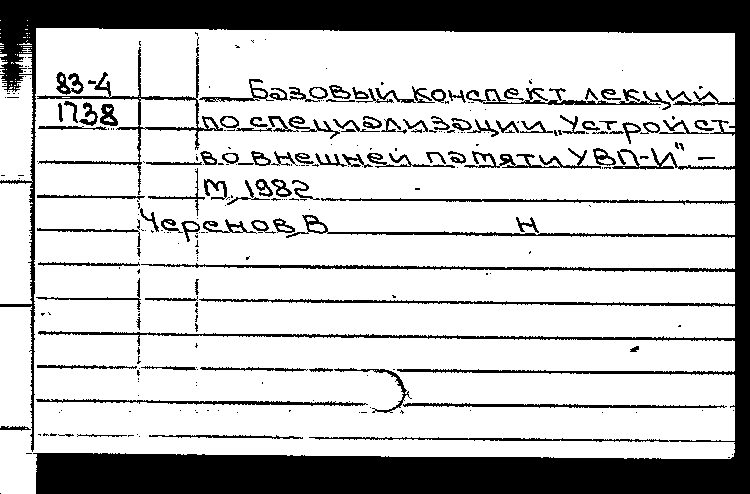 83-4 Базовый конспект лекций
1738 по специализации „Устройст-
во внешней памяти УВП-И" –
М, 1982
Черенов, В Н